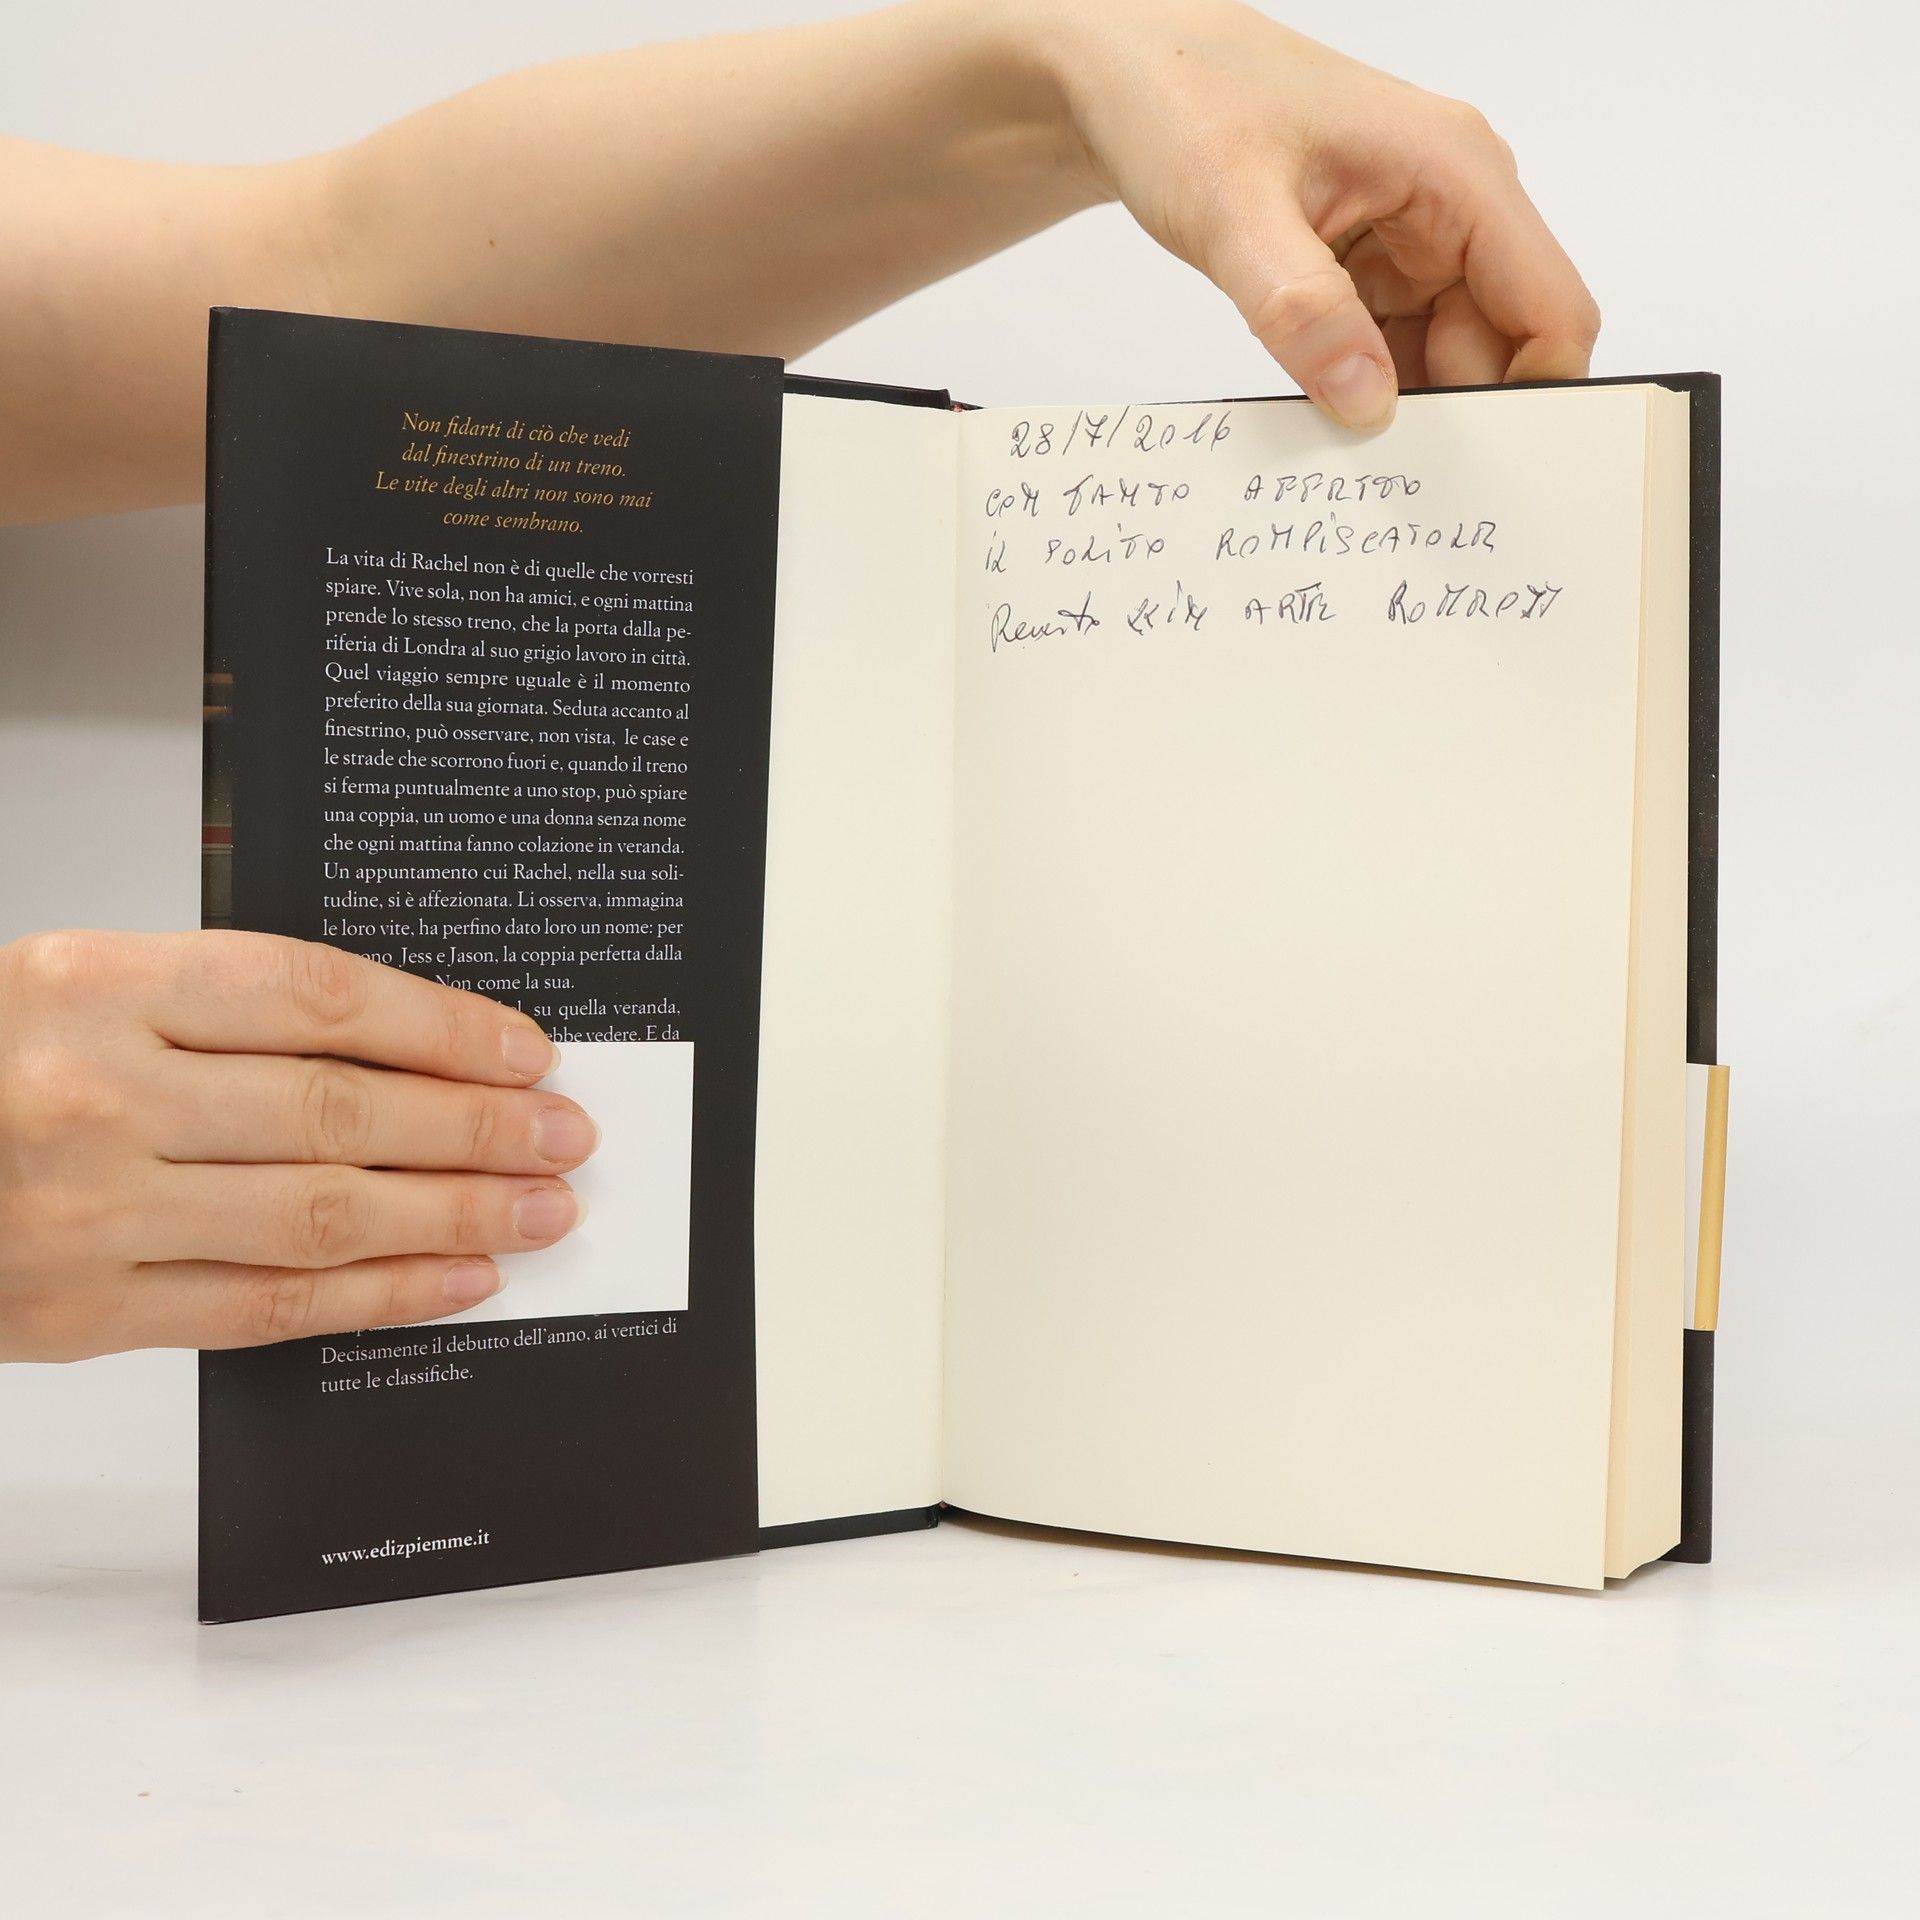 Non fidarti di ciò che vedi
dal finestrino di un treno.
Le vite degli altri non sono mai
come sembrano.
La vita di Rachel non è di quelle che vorresti
spiare. Vive sola, non ha amici, e ogni mattina
prende lo stesso treno, che la porta dalla pe-
riferia di Londra al suo grigio lavoro in città.
Quel viaggio sempre uguale è il momento
preferito della sua giornata. Seduta accanto al
finestrino, può osservare, non vista, le case e
le strade che scorrono fuori e, quando il treno
si ferma puntualmente a uno stop, può spiare
una coppia, un uomo e una donna senza nome
che ogni mattina fanno colazione in veranda.
Un appuntamento cui Rachel, nella sua soli-
tudine, si è affezionata. Li osserva, immagina
le loro vite, ha perfino dato loro un nome: per
Jess e Jason, la coppia perfetta dalla
Non come la sua.
su quella veranda,
vedere. E da
Decisamente il debutto dell'anno, ai vertici di
tutte le classifiche.
www.edizpiemme.it
28/7/2016
CON TANTO AFFETTO
il SOLITO ROMPISCATOLE
ARTE